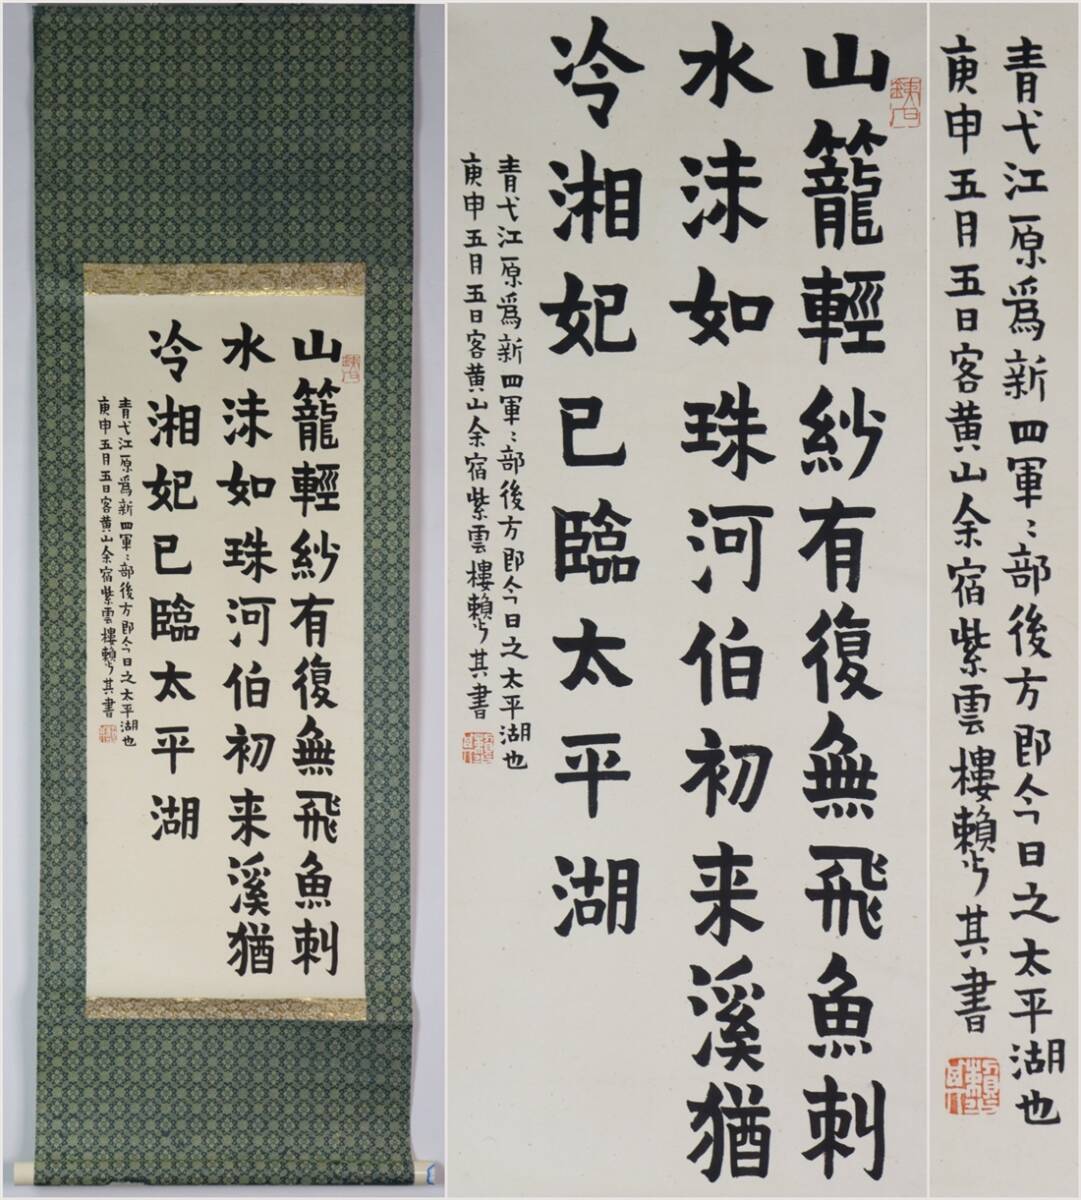 山籠輕紗有復無飛魚刺
水沫如珠河伯初来溪猶
冷湘妃已臨太平湖
青弋江原爲新四軍〻部後方即今日之太平湖也
庚申五月五日客黄山余宿紫雲樓賴少其書
山籠輕紗有復無飛魚刺
水沫如珠河伯初来溪猶
冷湘妃已臨太平湖
青弋江原爲新四軍〻部後方即今日之太平湖也
庚申五月五日客黄山余宿紫雲樓賴少其書
青弋江原爲新四軍〻部後方即今日之太平湖也
庚申五月五日客黄山余宿紫雲樓賴少其書